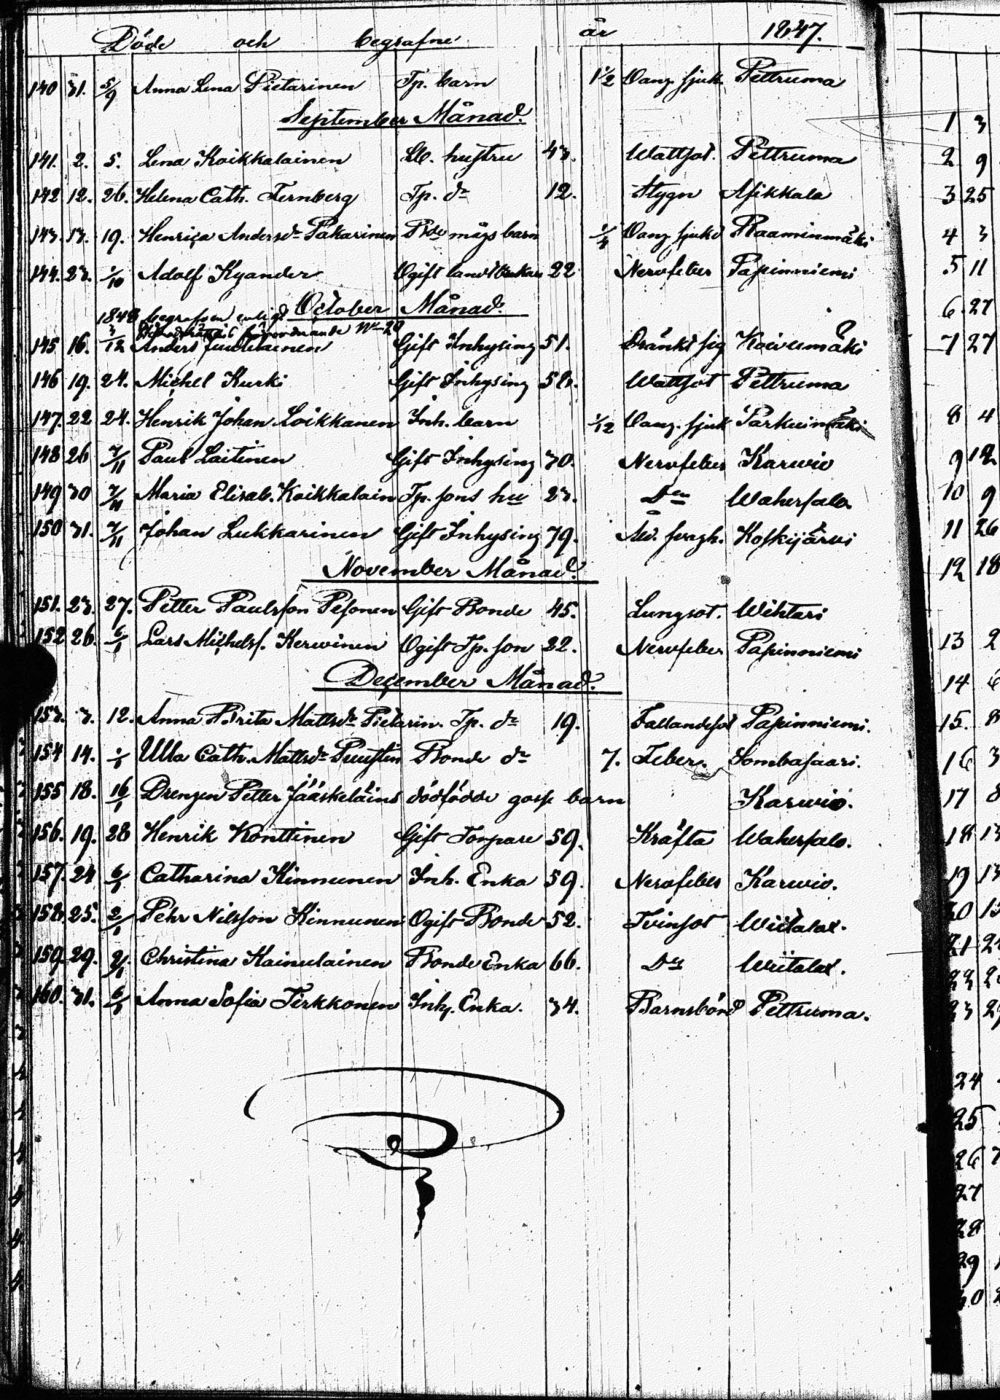 Döde och begrafne år 1847.
140 31. 5/9 Anna Lena Pietarinen Tp. barn 1 1/2 Oang. sjuk. Pettruma
September Månad.
141. 2. 5. Lena Koikkalainen Lb. hustru 43. Wattsot. Pettruma
142 12. 26. Helena Cath. Fernberg Tp. dr 12. Stygn Afikkala
143. 13. 19. Henrica Andersdr Pakarinen Bde mågs barn 1/4 Oang sjukd Raaminmäki
144. 23. 1/10 Adolf Kyander Ogift landtbrukare 22 Nervfeber Papinniemi
October Månad.
1848 begrafven enligt
No 20
145 16. 3/12 Anders Juutilainen Gift Inhysing 51. Dränkt sig Koivumäki
146 19. 24. Michel Kurki Gift Inhysing 58. Wattsot Pettruma
147. 22 24. Henrik Johan Loikkanen Inh. barn 1/12 Oang. sjuk Parkuimäki
148 26 7/11 Paul Laitinen Gift Inhysing 30. Nervfeber Karvio
149 30 7/11 Maria Elisab. Koikkalain Tp. sons hu 23. Do Wahersalo.
150 31. 7/11 Johan Lukkarinen Gift Inhysing 79. Ålд. svagh. Koskijärvi
November Månad.
151. 23. 27. Petter Paulsson Pesonen Gift Bonde 45. Lungsot. Wihtari
152 26. 6/1 Lars Michelss. Kervinen Ogift Tp. son 22. Nervfeber Papinniemi
December Månad.
153. 3. 12. Anna Brita Mattsdr Pietarin. Tp. dr 19. Fallandsot Papinniemi.
154 14. 1/1 Ulla Cath. Mattsdr Puustin Bonde dr 7. Feber. Sombasaari.
155 18. 16/1 Drengen Petter Jääskeläins dödfödde goss barn Karvio.
156. 19. 28 Henrik Konttinen Gift Torpare 59. Kräfta Wahersalo.
157. 24 6/1 Catharina Kinnunen Inh. Enka 59. Nervfeber Karvio.
158. 25. 2/1 Pehr Nilsson Kinnunen Ogift Bonde 52. Tvinsot Wiitalax.
159. 29. 2/1 Christina Kainulainen Bonde Enka 66. Do Wiitalax.
160. 31. 6/1 Anna Sofia Tirkkonen Inhy. Enka. 34. Barnsbörd Pettruma.
1 3
2 9
3 25
4 3
5 11
6 27
7 27
8 4
9 12
10 9
11 26
12 18
13 2
14 6
15. 8
16 3
17 8
18 13
19 13
20 13
24
25
26 7
27
28
29